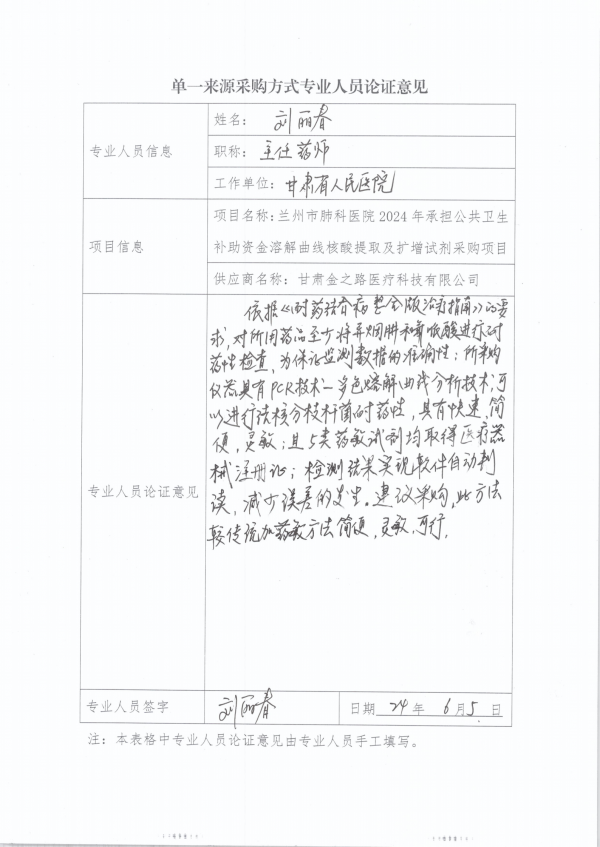 单一来源采购方式专业人员论证意见
专业人员信息
姓名： 刘丽春
职称： 主任药师
工作单位： 甘肃省人民医院
项目信息
项目名称：兰州市肺科医院 2024 年承担公共卫生
补助资金溶解曲线核酸提取及扩增试剂采购项目
供应商名称：甘肃金之路医疗科技有限公司
专业人员论证意见
依据《耐药结合病整合版治疗指南》的要
求，对所用药品至少将异烟肼和氟喹酸进行耐
药性检查，为保证监测数据的准确性；所采购
仪器具有PCR技术—多色熔解曲线分析技术，可
以进行结核分枝杆菌耐药性，具有快速、简
便，灵敏；且5类药敏试剂均取得医疗器
械注册证；检测结果实现软件自动判
读，减少误差的发生。建议采购，此方法
较传统加药敏方法简便，灵敏，可行。
专业人员签字
刘丽春
日期 24 年 6 月 5 日
注：本表格中专业人员论证意见由专业人员手工填写。